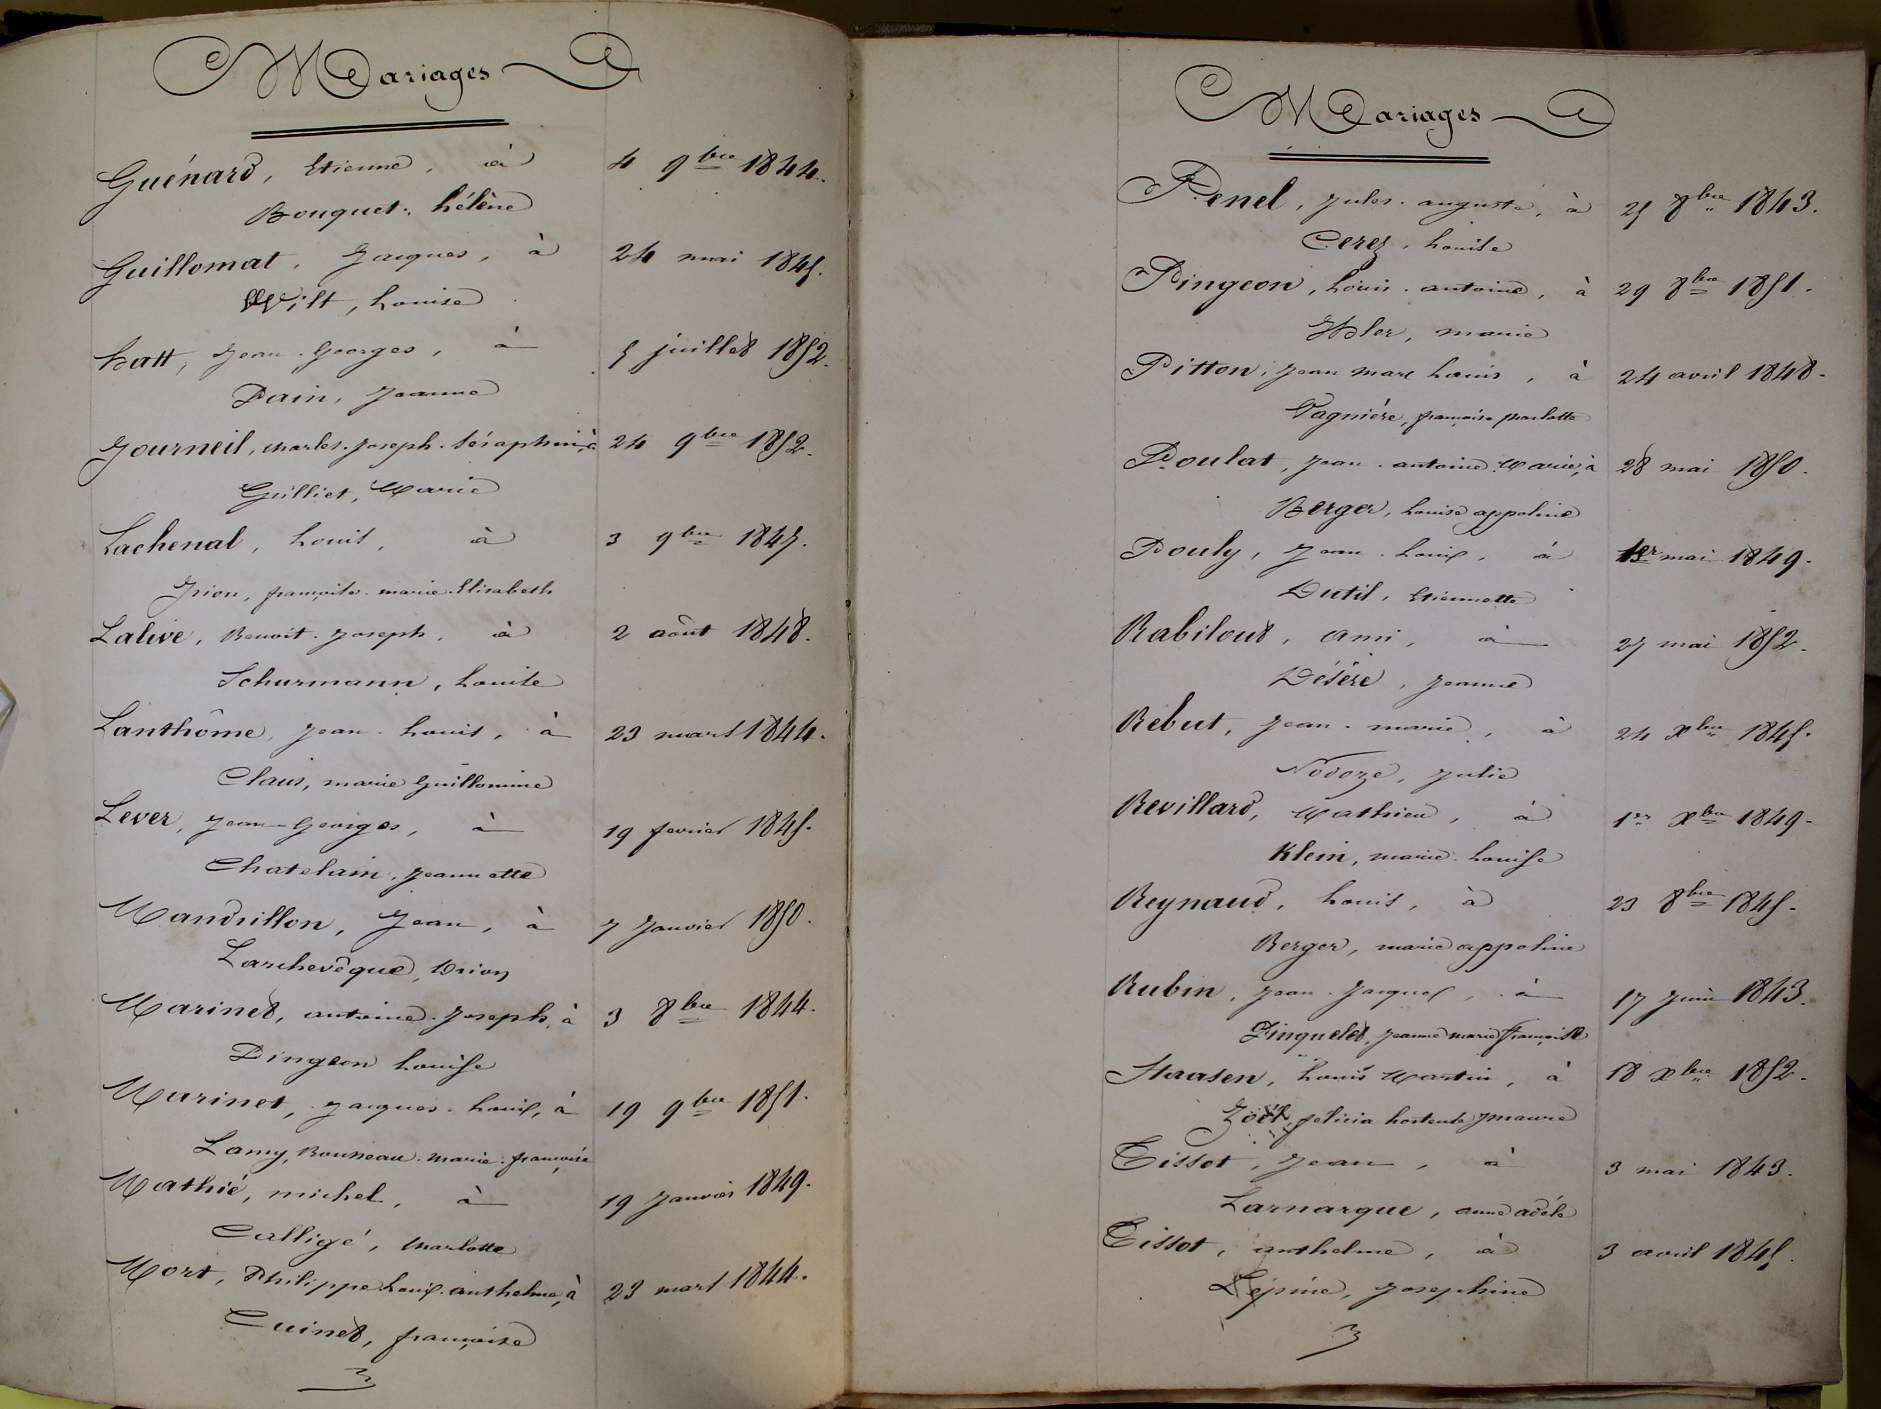 Mariages
Guénard, Etienne, à 4 9bre 1844.
Bouquet, hélène
Guillomat, Jacques, à 24 mai 1845.
Wilt, Louise
hatt, Jean-Georges, à 5 juillet 1852.
Dain, Jeanne
Journeil, Charles-Joseph-Séraphin, à 24 9bre 1852.
Guilliet, Marie
Lachenal, Louis, à 3 9bre 1847.
françoise-marie-Elisabeth
Lalive, Benoit-Joseph, à 2 août 1848.
Schurmann, Louise
Lanthôme, Jean-Louis, à 23 mars 1844.
Claus, marie Guillomine
Lever, Jean-Georges, à 19 fevrier 1845.
Chatelain, Jeannette
Mandrillon, Jean, à 7 Janvier 1850.
Larchevêque,
Marinet, antoine-Joseph, à 3 8bre 1844.
Pingeon Louise
Marinet, Jacques-Louis, à 19 9bre 1851.
Lamy, Bonneau-marie-françoise
Mathié, michel, à 19 Janvier 1849.
Calligé, Charlotte
Mort, Philippe Louis-anthelme, à 23 mars 1844.
Cuinet, françoise
Mariages
Penel, Jules-auguste, à 25 8bre 1843.
Cerez, Louise
Pingeon, Louis-antoine, à 29 8bre 1851.
marie
Pitton, Jean Marc Louis, à 24 avril 1848.
Vagnière, françoise charlotte
Poulat, Jean-antoine-Marie, à 28 mai 1850.
Berger, Louise appoline
Pouly, Jean-Louis, à 1er mai 1849.
Dutil, Etiennette
Rabiloud, ami, à 27 mai 1852.
Désère, Jeanne
Rebut, Jean-marie, à 24 Xbre 1845.
Nodoze, Julie
Revillard, Mathieu, à 1er Xbre 1849.
Klein, marie-Louise
Reynaud, Louis, à 23 8bre 1845.
Berger, marie appoline
Rubin, Jean-Jacques, à 17 Juin 1843.
Pinquelet, Jeanne marie françoise
Staasen, Louis Martin, à 18 Xbre 1852.
Zoël, felicia hortense
Tissot, Jean, à 3 mai 1843.
Larnarque, anne adèle
Tissot, anthelme, à 3 avril 1845.
Lépine, Josephine